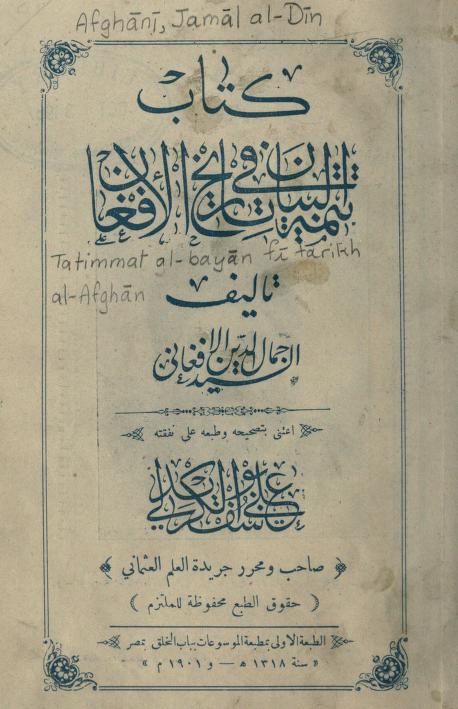 Afghānī, Jamāl al-Dīn
كتاب
تتمة البيان في تاريخ الأفغان
Tatimmat al-bayān fī tārīkh
al-Afghān
تاليف
السيد جمال الدين الافغاني
اعتنى بتصحيحه وطبعه على نفقته
علي يوسف الكريدلي
صاحب ومحرر جريدة العلم العثماني
( حقوق الطبع محفوظة للملتزم )
الطبعة الاولى بمطبعة الموسوعات بباب الخلق بمصر
« سنة ١٣١٨ ه — و ١٩٠١ م »